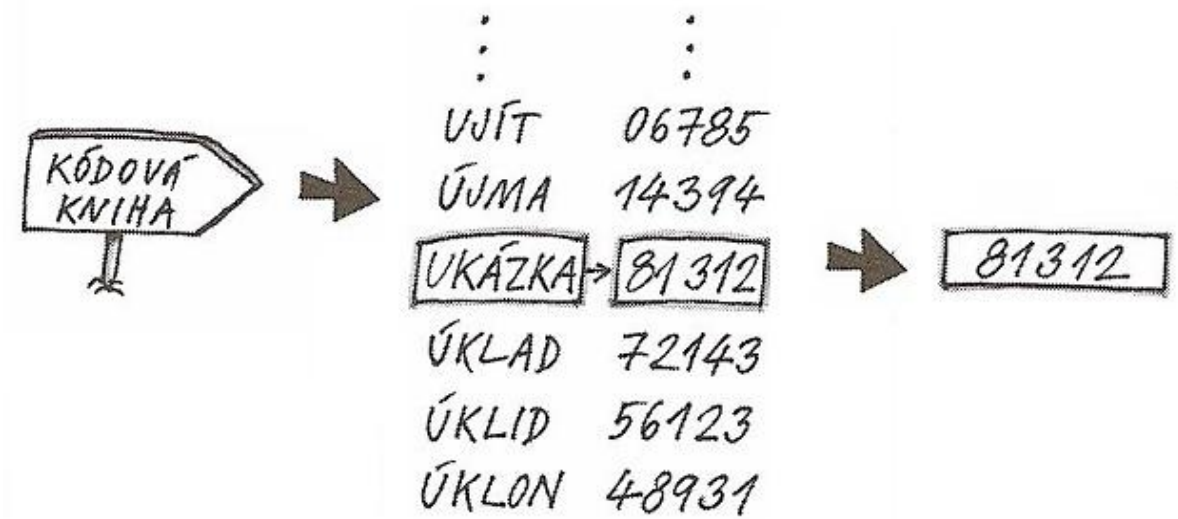 KÓDOVÁ
KNIHA
UJÍT 06785
ÚJMA 14394
UKÁZKA → 81312
ÚKLAD 72143
ÚKLID 56123
ÚKLON 48931
81312